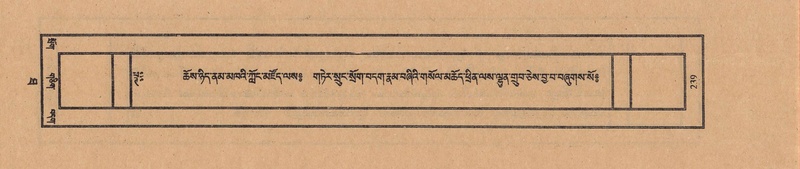 ༄༅། ཆོས་ཉིད་ནམ་མཁའི་ཀློང་མཛོད་ལས༔ གཏེར་སྲུང་སྲོག་བདག་རྣམ་བཞིའི་གསོལ་མཆོད་ཕྲིན་ལས་ལྷུན་གྲུབ་ཅེས་བྱ་བ་བཞུགས་སོ༔
239